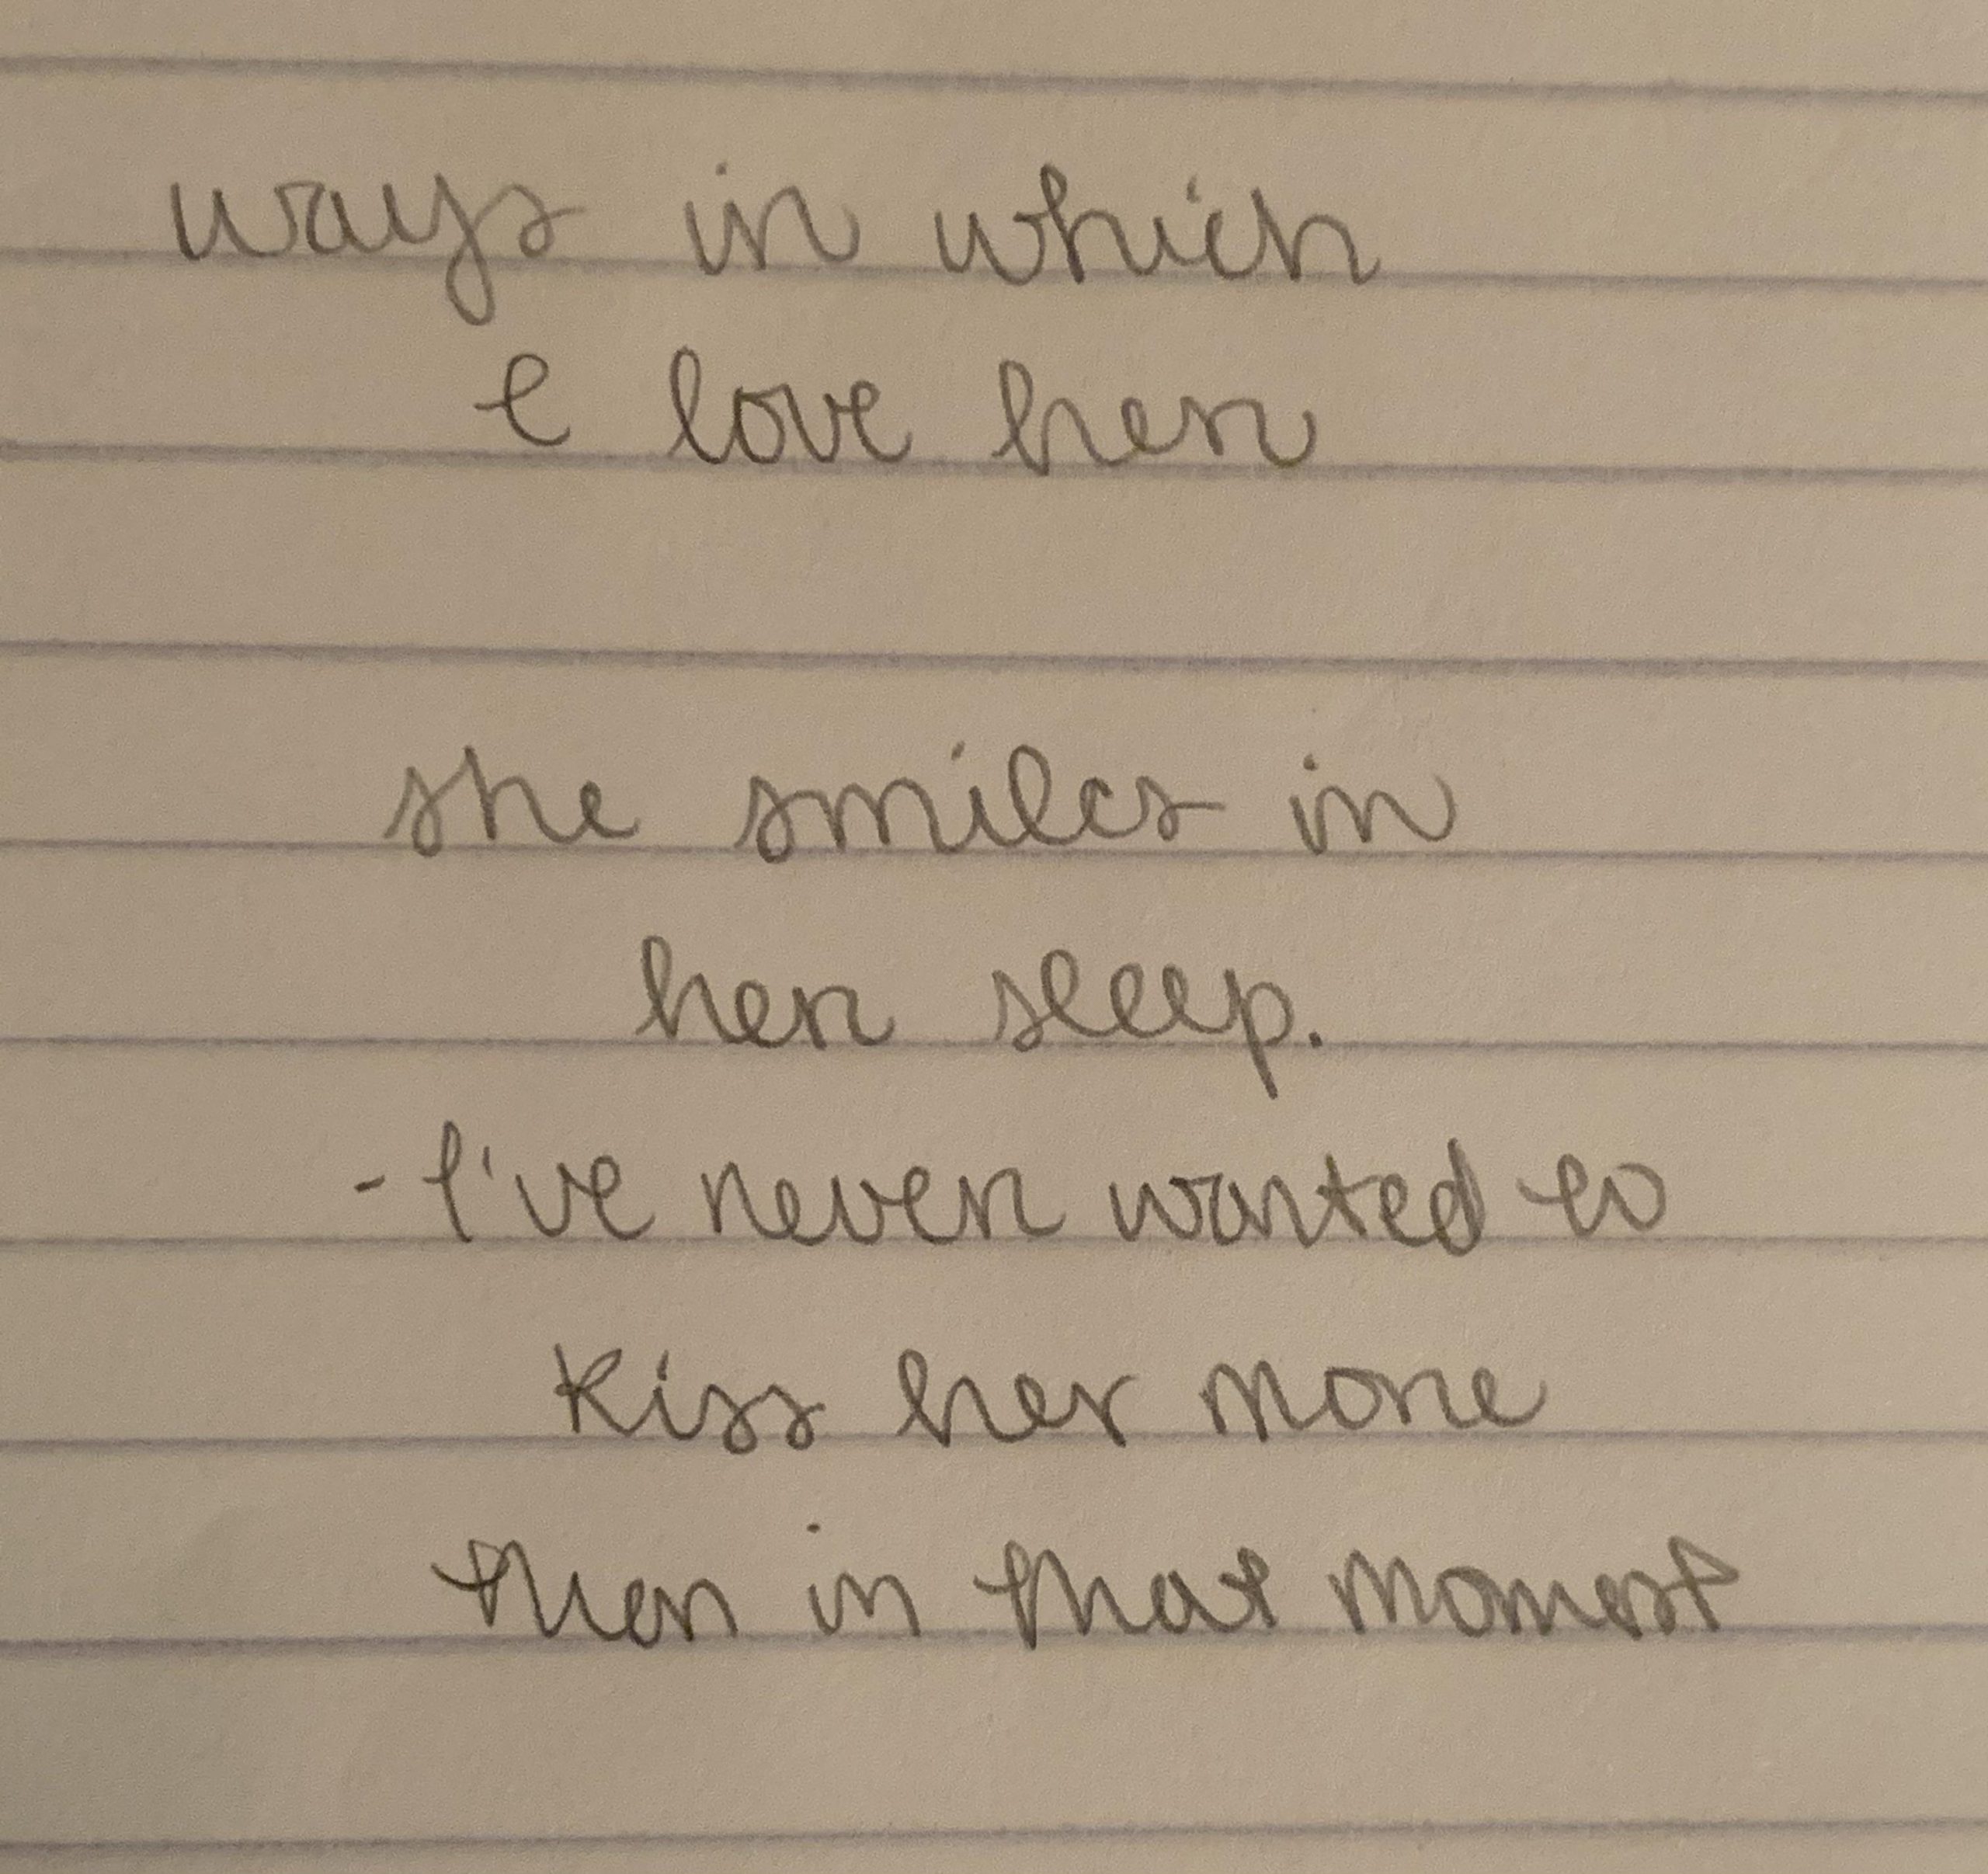 ways in which
I love her
she smiles in
her sleep.
- I've never wanted to
kiss her more
then in that moment